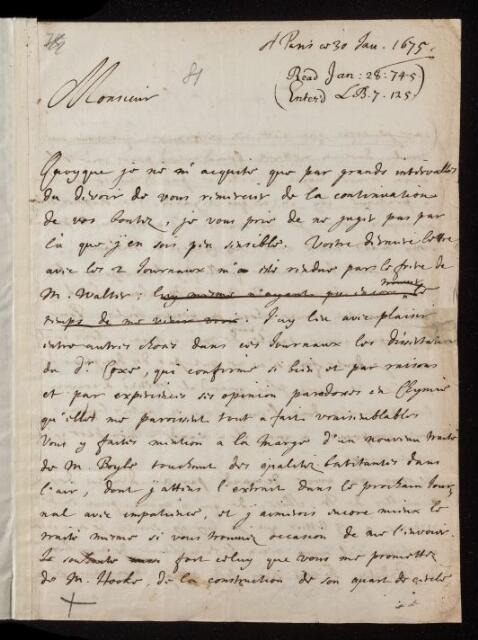 A Paris ce 30 Jan. 1675.
81
(Read Jan: 28: 74.5)
(Enterd L.B. 7. 125)
Monsieur
Quoyque je ne m'acquite que par grands intervalles
du devoir de vous remercier de la continuation
de vos bontez, je vous prie de ne juger pas par
là que j'en sois peu sensible. Vostre derniere lettre
avec les 2 Journaux m'a esté rendue par le frere de
M. Walter; luy mesme n'ayant pu encore trouver le
temps de me venir voir. J'ay leu avec plaisir
entre autres choses dans ces Journaux les dissertations
du Dr. Coxe, qui confirme si bien et par raisons
et par experiences ses opinions paradoxes en Chymie
qu'elles me paroissent tout a fait vraisemblables
Vous y faites mention a la marge d'un nouveau traité
de M. Boyle touchant des qualitez latitantes dans
l'air, dont j'attens l'extrait dans le prochain Jour
nal avec impatience, et j'aimerois encore mieux le
traité mesme si vous trouviez occasion de me l'envoier.
Je souhaite fort celuy que vous me promettez
de M. Hooke, de la construction de son quart de cercle